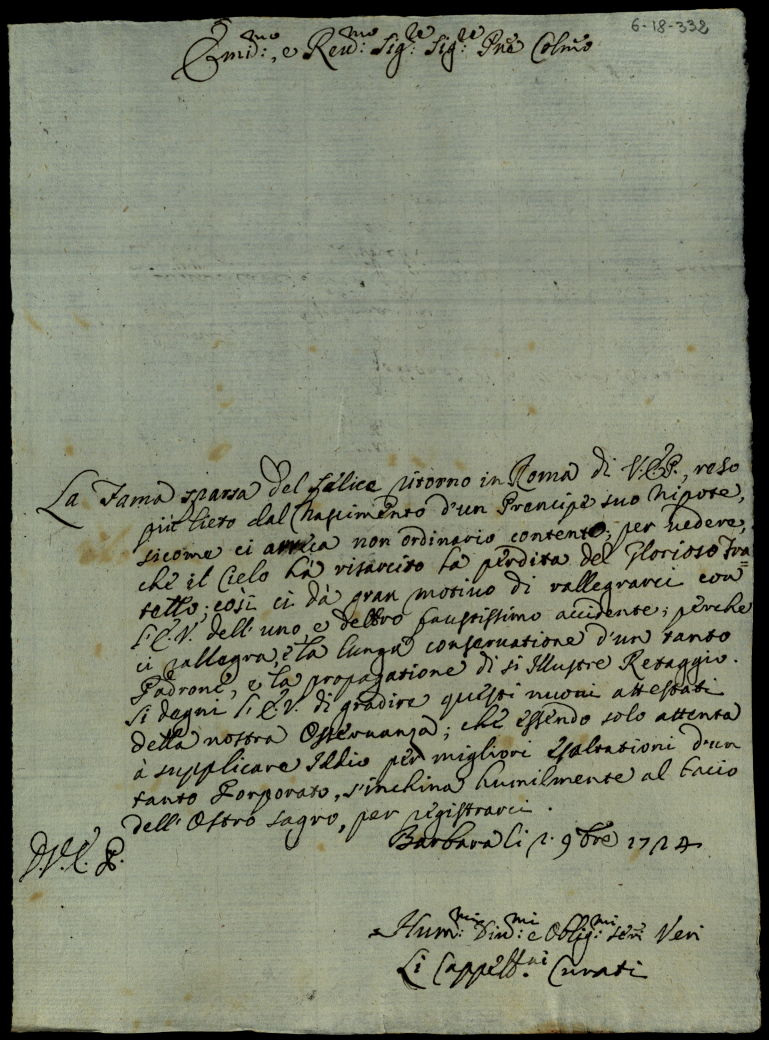 6-18-332
Emid:mo, e Revd:mo Sig:re Sig:re Pñe Colmo
La Fama sparsa del felice ritorno in Roma di V.E.P., reso
piu lieto dal Nascimento d'un Prencipe suo Nipote,
sicome ci arreca non ordinario contento, per uedere,
che il Cielo hà risarcito la perdita del Glorioso Fra=
tello; così ci dà gran motiuo di rallegrarci con
l'E.V. dell'uno, e dell'altro faustissimo accidente; perche
ci rallegra, e la lunga conseruatione d'un tanto
Padrone, e la propagatione di sì Illustre Retaggio.
Si degni l'E.V. di gradire questi nuoui attestati
della nostra Osseruanza; che essendo solo attenta
à supplicare Iddio per migliori esaltationi d'un
tanto Porporato, s'inchina humilmente al bacio
dell'Ostro sagro, per registrarci.
D.V.E. P.
Barbara li 2. 9bre 1724
Hum:mi Diu:mi e Oblig:mi seri Veri
Li Cappell:ni Curati